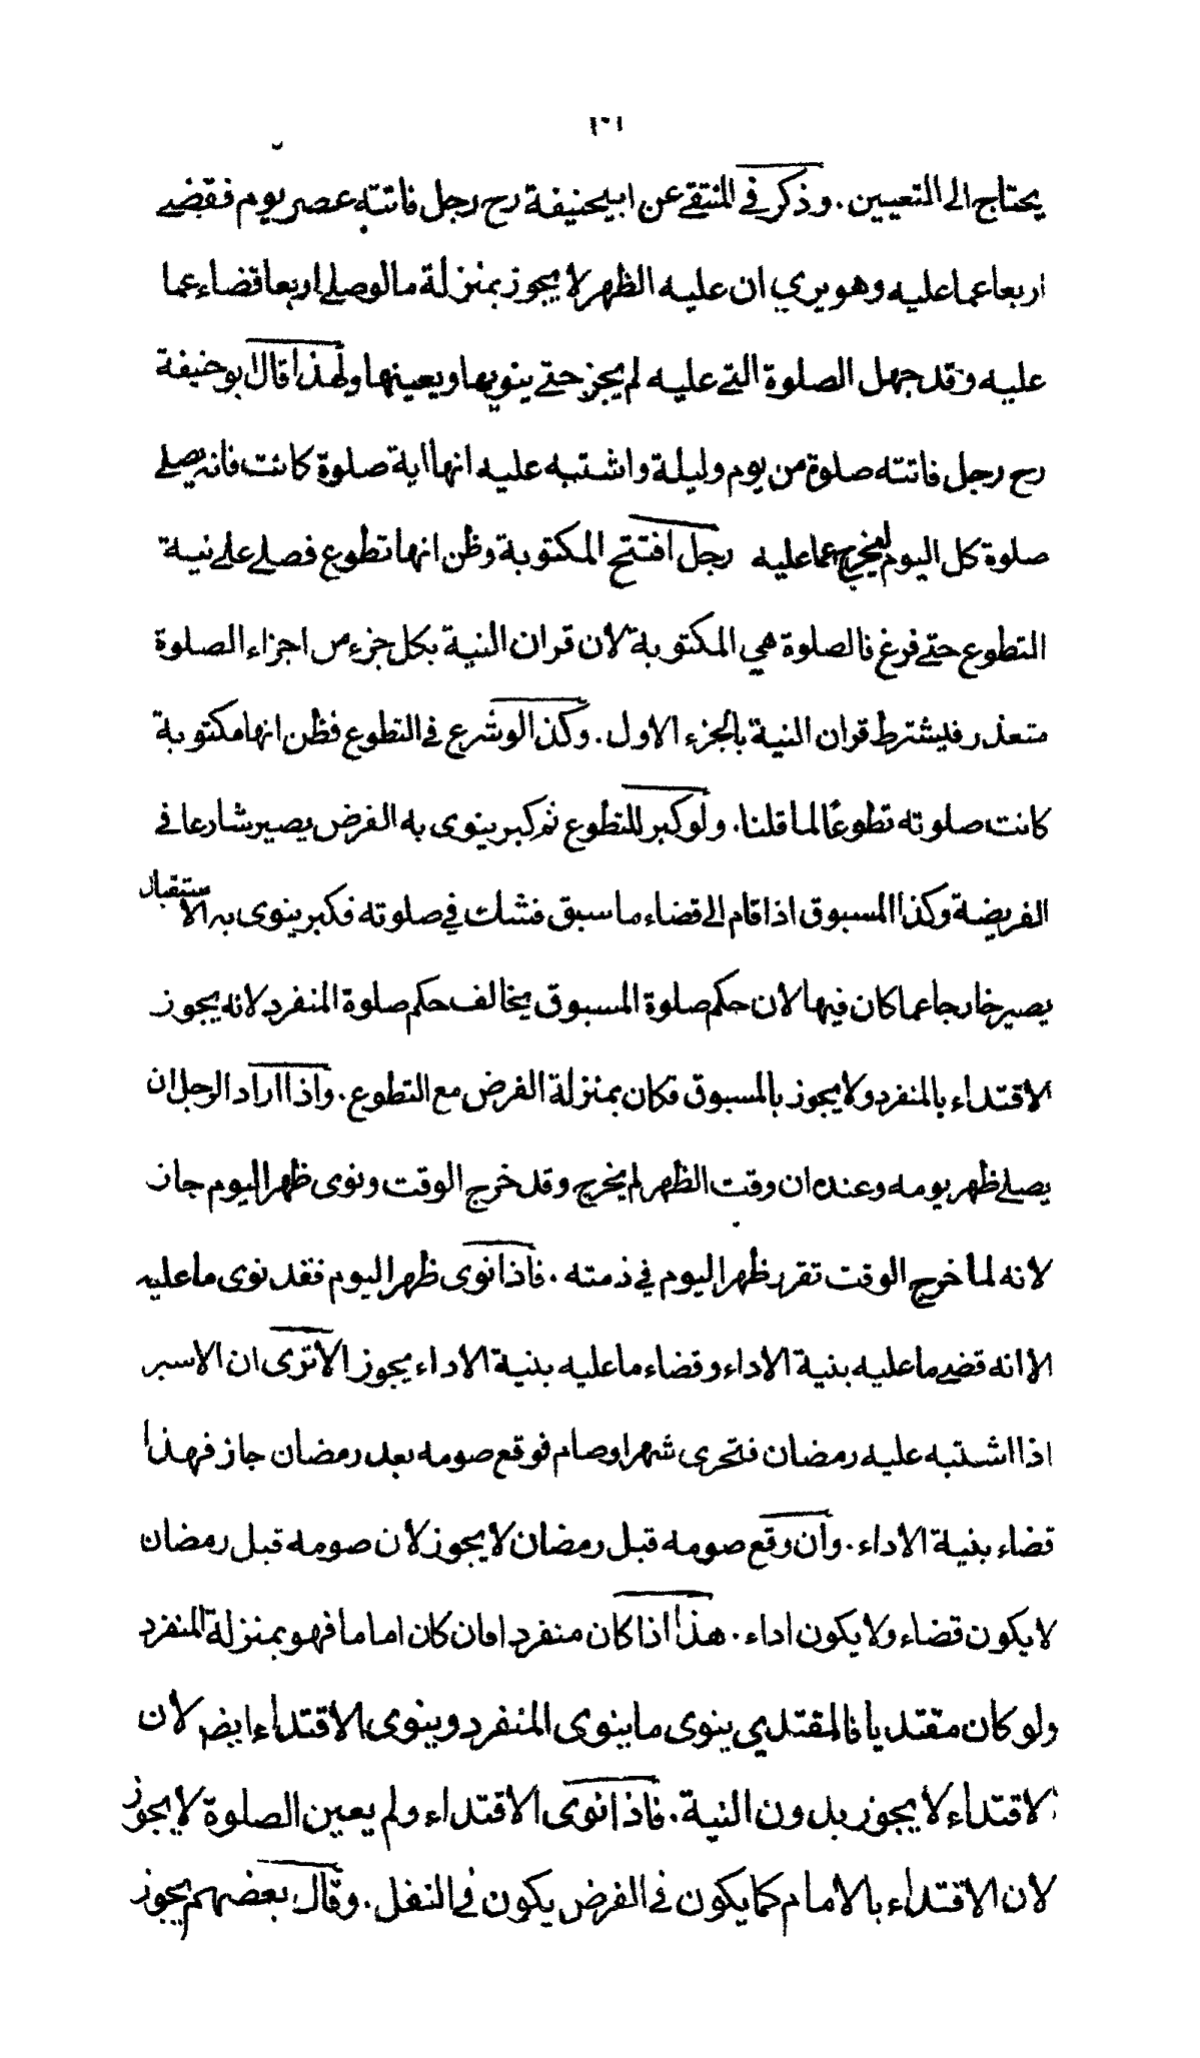 ١٠١
يحتاج الى التعيين . وذكر في المنتقے عن ابيحنيفة رح رجل فاتته عصر يوم فقضے
اربعا عما عليه وهو يري ان عليه الظهر لا يجوز بمنزلة ما لو صلے اربعا قضاء عما
عليه وقد جهل الصلوة التے عليه لم يجز حتے ينويها ويعينها ولهذا قال ابو حنيفة
رح رجل فاتته صلوة من يوم وليلة واشتبه عليه انها اية صلوة كانت فانه يصلے
صلوة كل اليوم ليخرج عما عليه رجل افتتح المكتوبة وظن انها تطوع فصلے علے نية
التطوع حتے فرغ فالصلوة هي المكتوبة لان قران النية بكل جزء من اجزاء الصلوة
متعذر فيشترط قران النية بالجزء الاول . وكذا لو شرع في التطوع فظن انها مكتوبة
كانت صلوته تطوعًا لما قلنا . ولو كبر للتطوع ثم كبر ينوى به الفرض يصير شارعا في
الفريضة وكذا المسبوق اذا قام الى قضاء ما سبق فشك في صلوته فكبر ينوى به الاستقبال
يصير خارجا عما كان فيها لان حكم صلوة المسبوق يخالف حكم صلوة المنفرد لانه يجوز
الاقتداء بالمنفرد ولا يجوز بالمسبوق فكان بمنزلة الفرض مع التطوع . واذا اراد الرجل ان
يصلے ظهر يومه وعنده ان وقت الظهر لم يخرج وقد خرج الوقت ونوى ظهر اليوم جاز
لانه لما خرج الوقت تقرر ظهر اليوم في ذمته . فاذا نوى ظهر اليوم فقد نوى ما عليه
الا انه قضے ما عليه بنية الاداء وقضاء ما عليه بنية الاداء يجوز الا ترى ان الاسير
اذا اشتبه عليه رمضان فتحرى شهرا وصام فوقع صومه بعد رمضان جاز فهذا
قضاء بنية الاداء . وان وقع صومه قبل رمضان لا يجوز لان صومه قبل رمضان
لا يكون قضاء ولا يكون اداء . هذا اذا كان منفردا فان كان اماما فهو بمنزلة المنفرد
ولو كان مقتديا فالمقتدي ينوى ما ينوى المنفرد وينوى الاقتداء ايضا لان
الاقتداء لا يجوز بدون النية . فاذا نوى الاقتداء ولم يعين الصلوة لا يجوز
لان الاقتداء بالامام كما يكون في الفرض يكون في النفل . وقال بعضهم يجوز